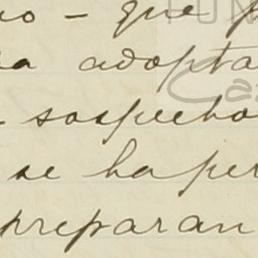 no – que p
a adopta
sospecho
se ha per
preparan